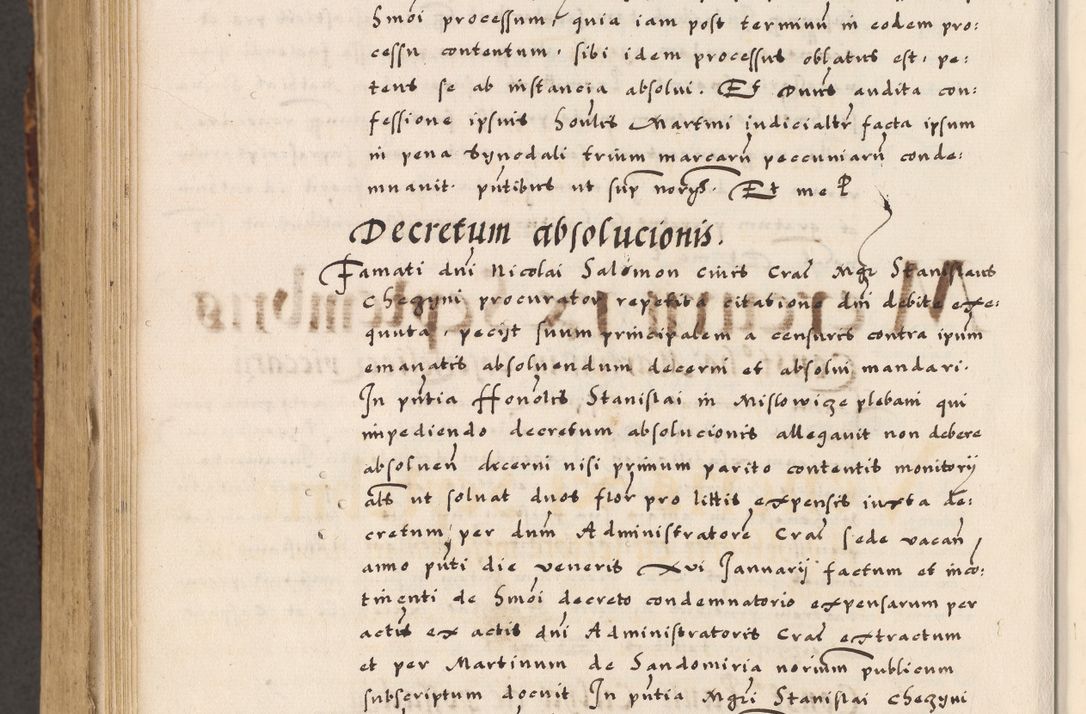 Smõi processum, quia iam post terminũ in eodem pro:
cessu contentum, sibi idem processus oblatus est, pe:
tens se ab instancia absolui. Et Dnũs audita con:
fessione ipsius honũlis Martini iudicialr̃ facta ipsum
in pena synodali trium marcarũ peccuniarũ conde:
mnauit. pñtibus ut sup̃ norÿs. Et me P
Decretum absolucionis.
Famati dñi Nicolai Salomon ciuis Craĩ Mgr̃ Stanislaus
Chegyni procurator repetita citatione dñi debite exe:
quuta, pecÿt suum principalem a censuris contra ipsum
emanatis absoluendum decerni et absolui mandari.
In pñtia Honõlis Stanislai in Mislowicze plebani qui
impediendo decretum absolucionis allegauit non debere
absoluen̄ decerni nisi primum parito contentis monitorÿ
als̃ ut soluat duos flor̃ pro littis expensis iuxta de:
cretum, per dnm̃ Administratorẽ Craĩ sede vacan̄
anno pñti die veneris xvi Januarÿ factum et inco:
tinenti de Smõi decreto condemnatorio expensarum per
actis ex actis dñi Administratoris Craĩ extractum
et per Martinum de Sandomiria norium publicum
subscriptum docuit In pñtia Mgrĩ Stanislai Chegyni